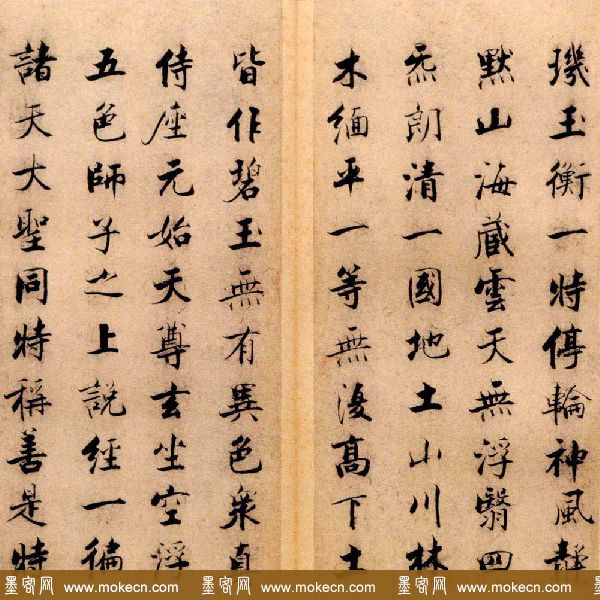 璣玉衡一時停輪神風靜
默山海藏雲天無浮翳四
炁朗清一國地土山川林
木緬平一等無復高下土
皆作碧玉無有異色眾真
侍座元始天尊玄坐空浮
五色師子之上說經一徧
諸天大聖同時稱善是時
墨客网 www.mokecn.com 墨客网 www.mokecn.com 墨客网 www.mokecn.com